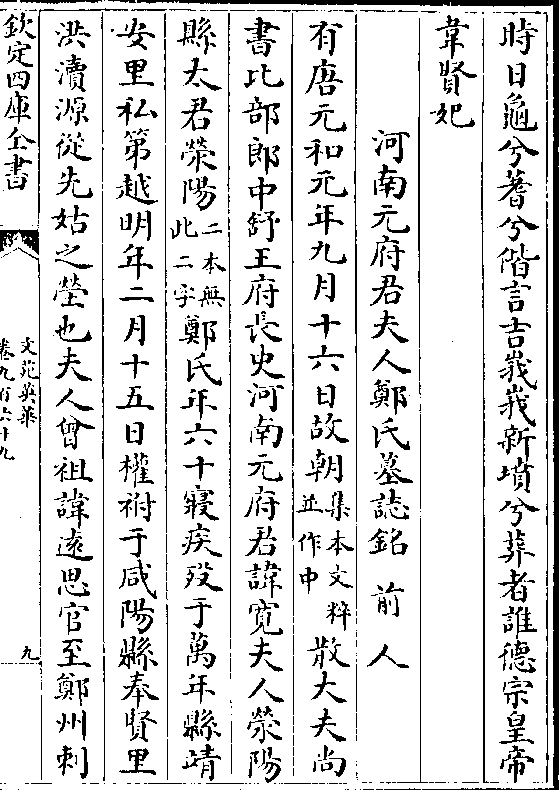 時日龜兮蓍兮偕言吉峩峩新墳兮葬者誰德宗皇帝
韋賢妃
河南元府君夫人鄭氏墓誌銘 前人
有唐元和元年九月十六日故朝集本文粹並作中散大夫尚
書比部郎中舒王府長史河南元府君諱寛夫人滎陽
縣太君滎陽二本無此二字鄭氏年六十寢疾殁于萬年縣靖
安里私第越明年二月十五日權祔于咸陽縣奉賢里
洪瀆源從先姑之塋也夫人曾祖諱逺思官至鄭州刺
欽定四庫全書
文苑英華
卷九百六十九
九